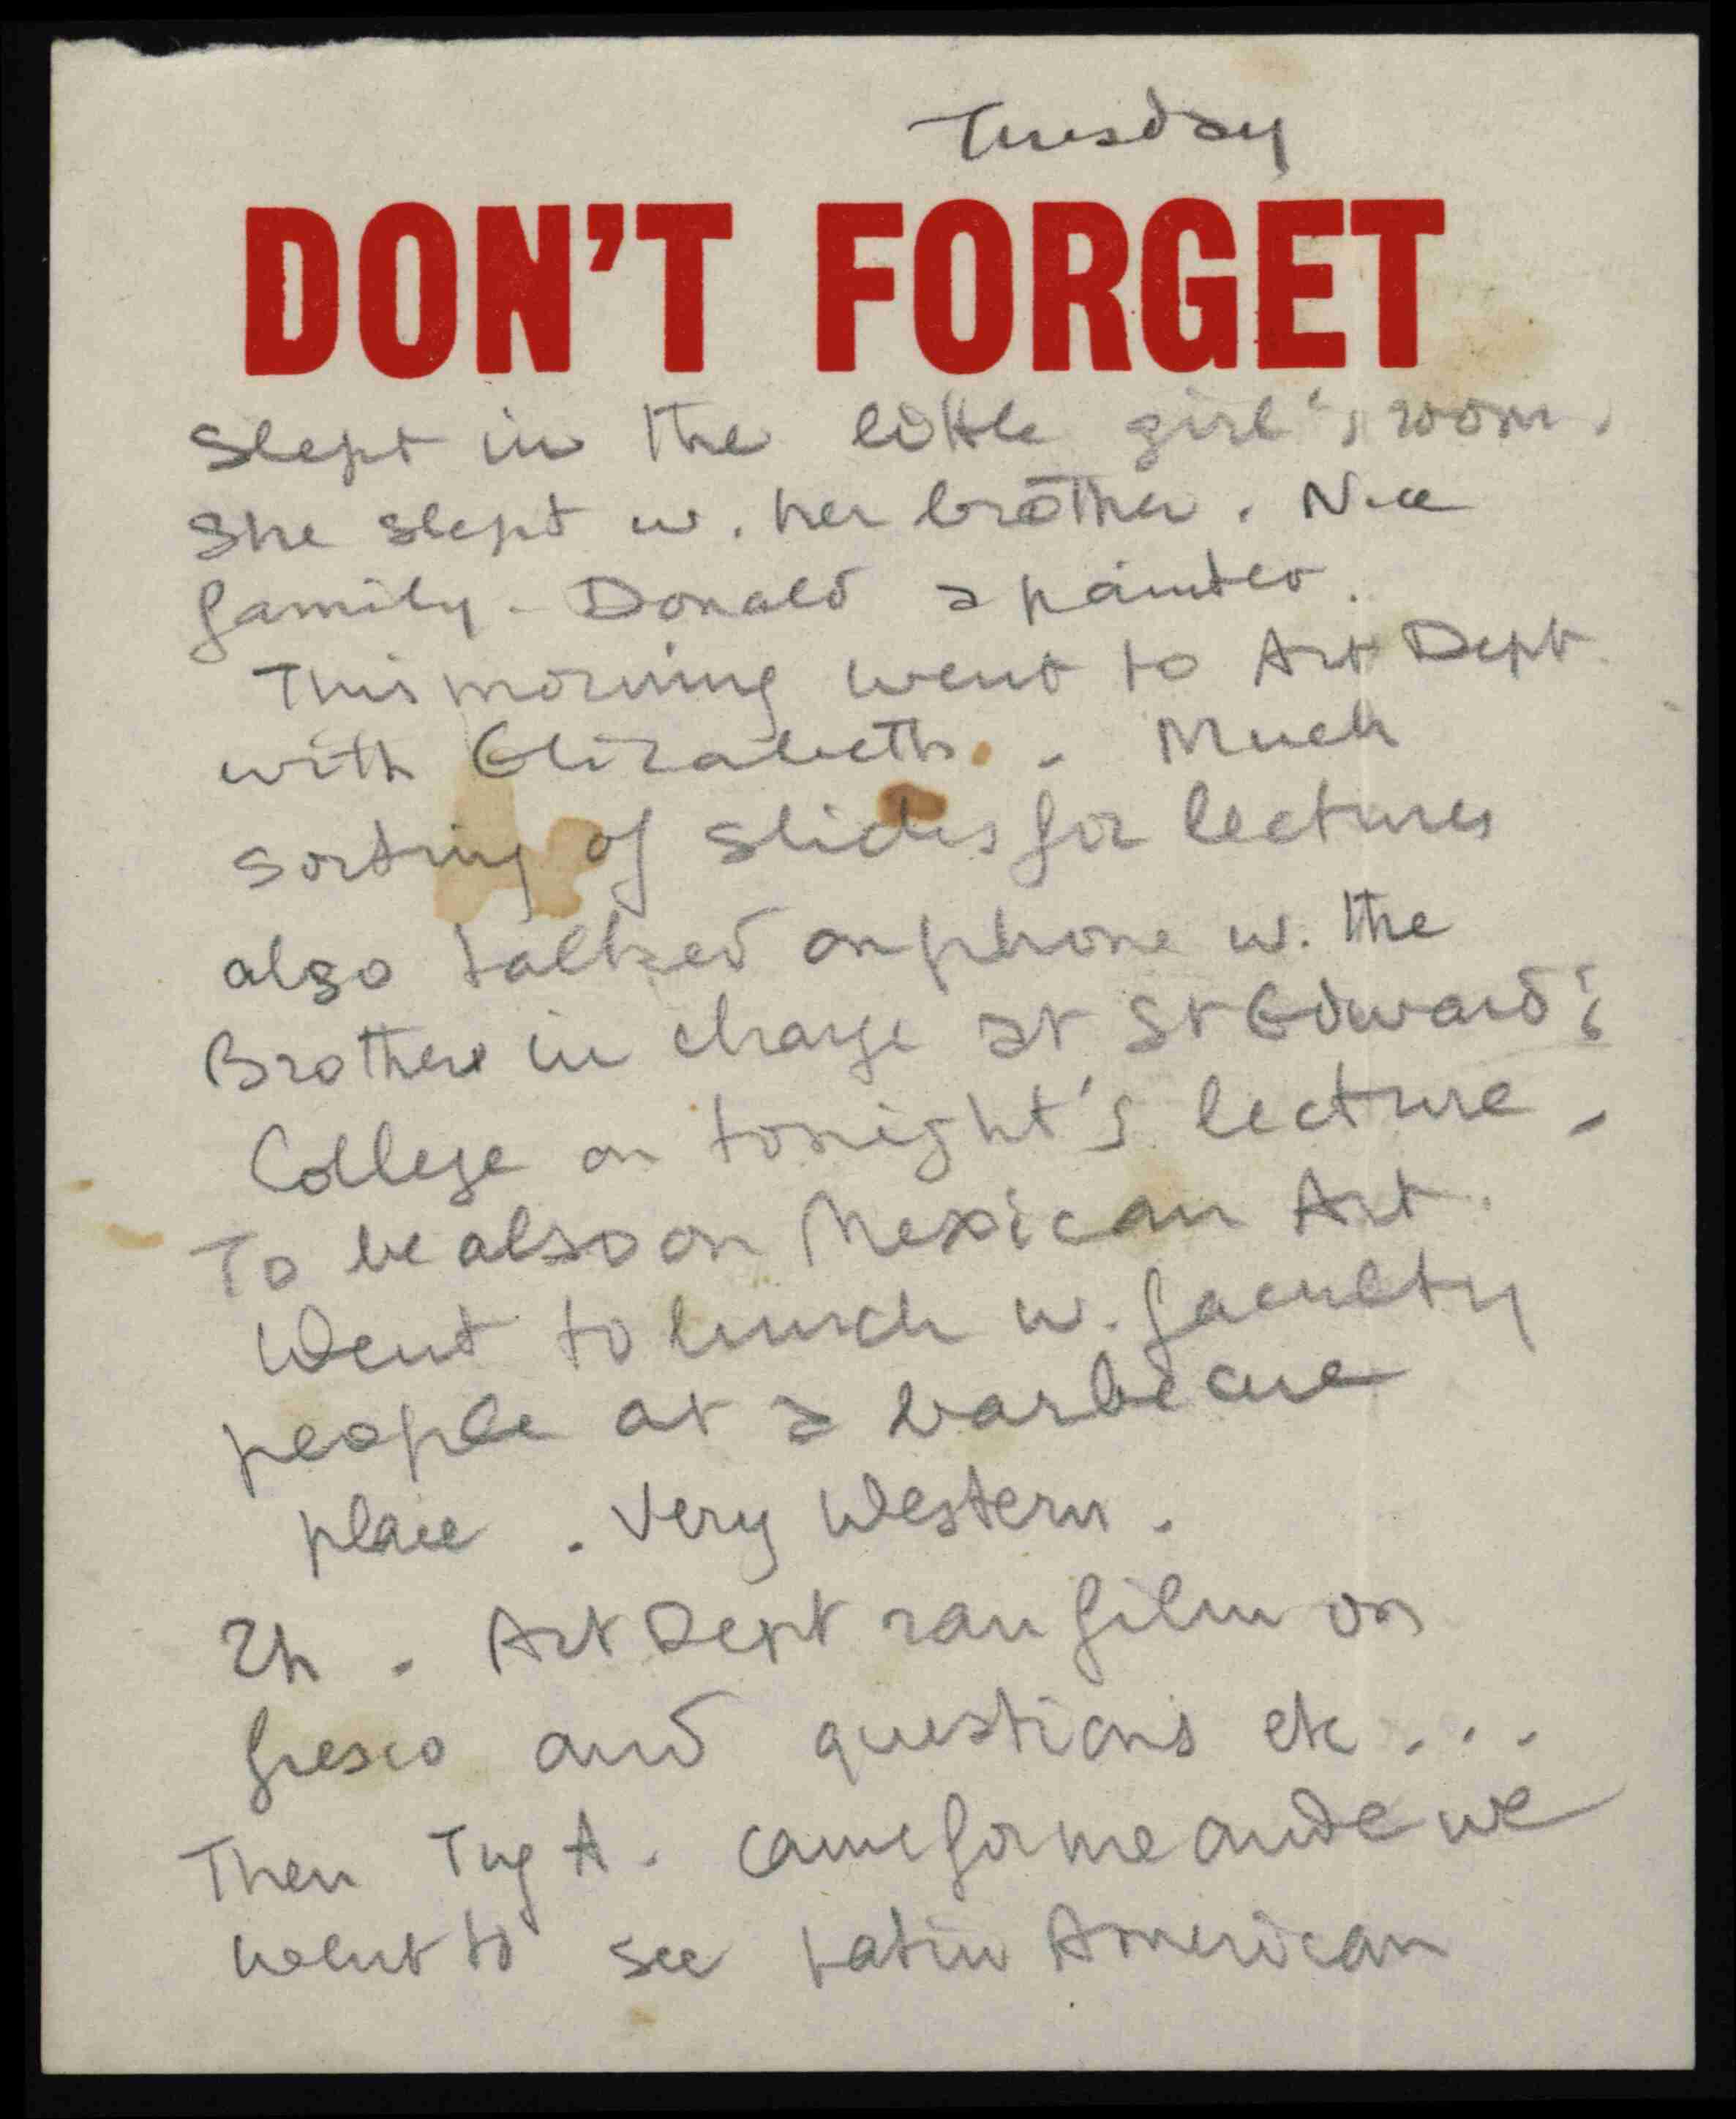 Tuesday
DON'T FORGET
Slept in the little girl's room.
She slept w. her brother. Nice
family - Donald a painter.
This morning went to Art Dept
with Elizabeth. - Much
sorting of slides for lectures
also talked on phone w. the
Brother in charge at St Edward's
College on tonight's lecture -
To be also on Mexican Art.
Went to lunch w. faculty
people at a barbecue
place. Very Western.
2h. Art Dept ran film on
fresco and questions etc...
Then Tug A. came for me and we
went to see Latin American